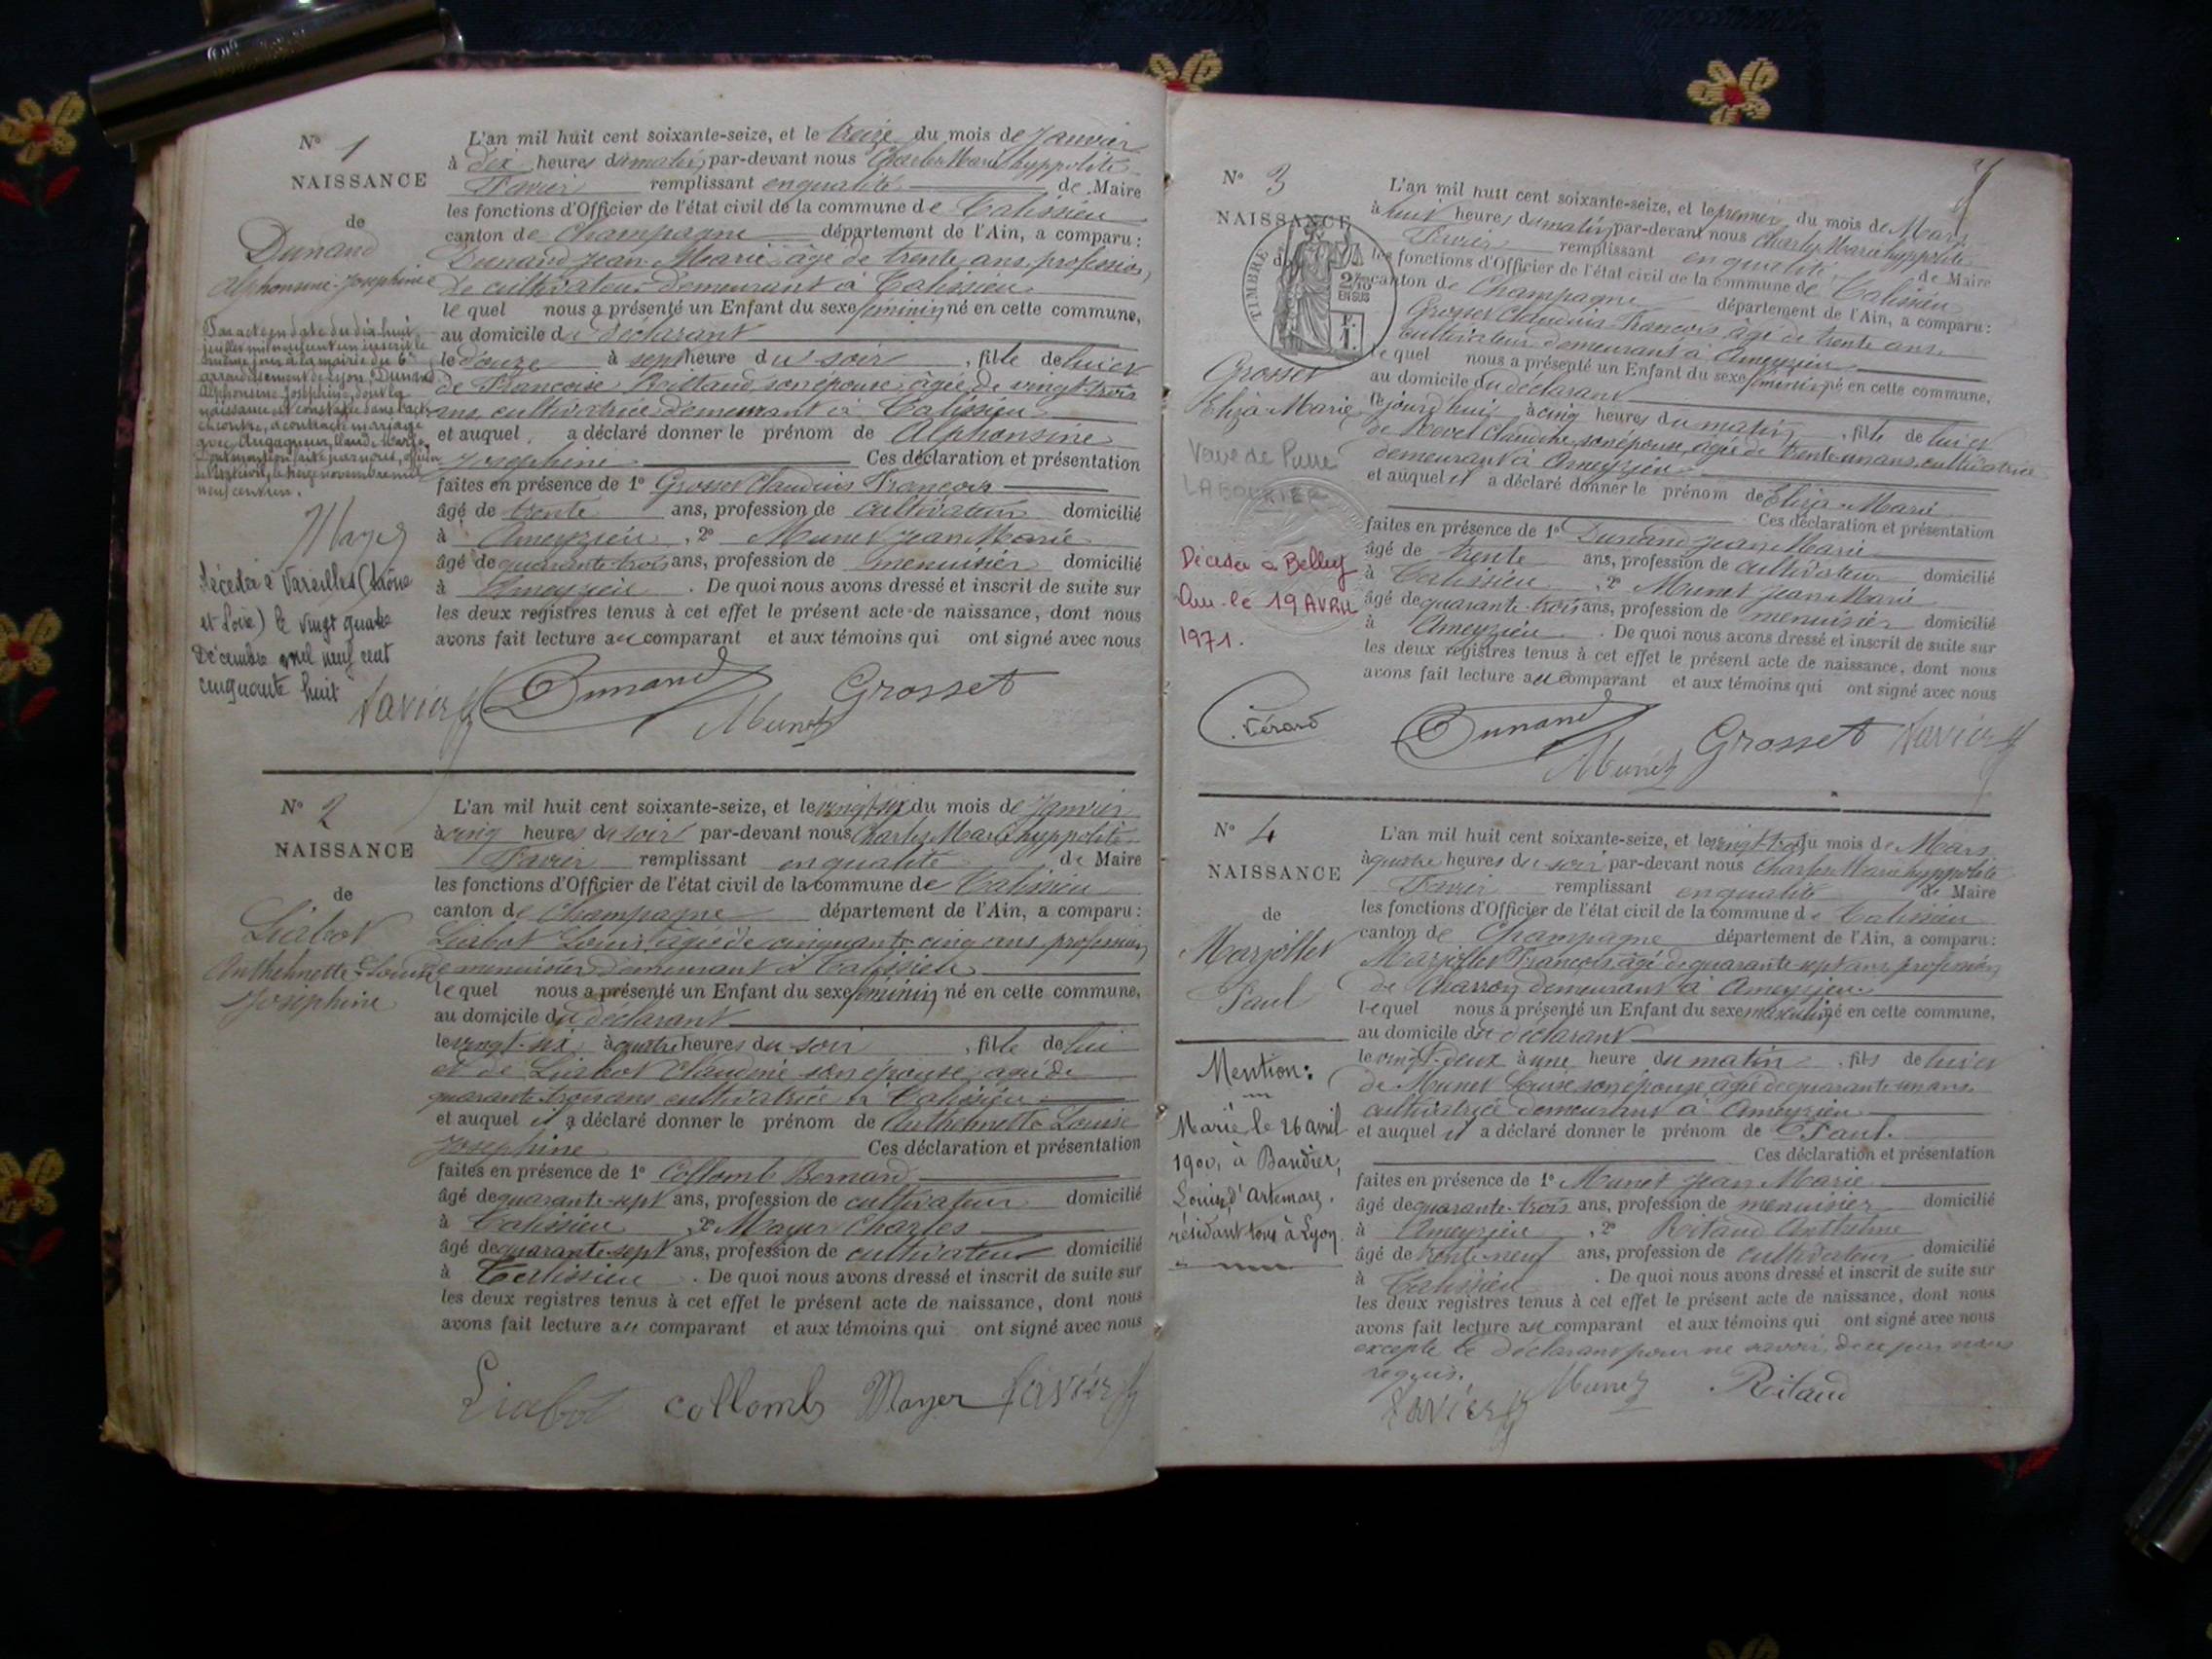 N° 1
NAISSANCE
de
Dunand
Alphonsine-Josephine
Par acte en date du dix-huit
juillet mil neuf cent un inscrit le
même jour à la mairie du 6e
arrondissement de Lyon, Dunand
Alphonsine Joséphine, dont la
naissance est constatée dans l'acte
ci contre, a contracté mariage
avec Augagneur, Claude Marie.
Dont mention faite par nous, officier
de l'état civil, le treize novembre mil
neuf cent un.
Mayer
Décédée à Vareilles (Saône
et Loire) le vingt quatre
Décembre mil neuf cent
cinquante huit
L'an mil huit cent soixante-seize, et le treize du mois de Janvier
à dix heures du matin, par-devant nous Charles Marie hyppolite
Favier remplissant en qualité de Maire
les fonctions d'Officier de l'état civil de la commune de Talissieu
canton de Champagne département de l'Ain, a comparu :
Dunand Jean-Marie âgé de trente ans, profession
de cultivateur demeurant à Talissieu
lequel nous a présenté un Enfant du sexe féminin né en cette commune,
au domicile du déclarant
le douze à sept heure du soir , fille de lui et
de Françoise son épouse, âgée de vingt-trois
ans, cultivatrice demeurant à Talissieu
et auquel, a déclaré donner le prénom de Alphonsine
Josephine Ces déclaration et présentation
faites en présence de 1° Grosset Claudius François
âgé de trente ans, profession de cultivateur domicilié
à Ameyzieu , 2° Munet Jean Marie
âgé de quarante-trois ans, profession de menuisier domicilié
à Ameyzieu . De quoi nous avons dressé et inscrit de suite sur
les deux registres tenus à cet effet le présent acte de naissance, dont nous
avons fait lecture au comparant et aux témoins qui ont signé avec nous
Favier Dunand Munet Grosset
N° 2
NAISSANCE
de
Liabot
Anthelmette-Louise
Joséphine
L'an mil huit cent soixante-seize, et le vingt-six du mois de Janvier
à cinq heures du soir par-devant nous Charles Marie hyppolite
Favier remplissant en qualité de Maire
les fonctions d'Officier de l'état civil de la commune de Talissieu
canton de Champagne département de l'Ain, a comparu :
Liabot Louis, âgé de cinquante-cinq ans profession
de menuisier demeurant à Talissieu
lequel nous a présenté un Enfant du sexe féminin né en cette commune,
au domicile du déclarant
le vingt-six à quatre heures du soir , fille de lui
et de Liabot Claudine son épouse, âgée de
quarante trois ans, cultivatrice à Talissieu
et auquel il a déclaré donner le prénom de Anthelmette Louise
Josephine Ces déclaration et présentation
faites en présence de 1° Collomb Bernard
âgé de quarante-sept ans, profession de cultivateur domicilié
à Talissieu , 2° Mayer Charles
âgé de quarante-sept ans, profession de cultivateur domicilié
à Talissieu . De quoi nous avons dressé et inscrit de suite sur
les deux registres tenus à cet effet le présent acte de naissance, dont nous
avons fait lecture au comparant et aux témoins qui ont signé avec nous
Liabot collomb Mayer favier
N° 3
NAISSANCE
TIMBRE
2/10
EN SUS
F.
1.
Grosset
Eliza-Marie
Veuve de Pierre
LABOURIER
Décédée à Belley
Ain le 19 AVRIL
1971.
Férard
L'an mil huit cent soixante-seize, et le premier du mois de Mars
à huit heures du matin par-devant nous Charles Marie hyppolite
Favier remplissant en qualité de Maire
les fonctions d'Officier de l'état civil de la commune de Talissieu
canton de Champagne département de l'Ain, a comparu :
Grosset Claudius François âgé de trente ans
cultivateur demeurant à Ameyzieu
lequel nous a présenté un Enfant du sexe féminin né en cette commune,
au domicile du déclarant
le jourd'hui à cinq heures du matin , fille de lui et
de Claudine, son épouse, âgée de trente un ans, cultivatrice
demeurant à Ameyzieu
et auquel il a déclaré donner le prénom de Eliza-Marie
Ces déclaration et présentation
faites en présence de 1° Dunand Jean Marie
âgé de trente ans, profession de cultivateur domicilié
à Talissieu , 2° Munet Jean Marie
âgé de quarante-trois ans, profession de menuisier domicilié
à Ameyzieu . De quoi nous avons dressé et inscrit de suite sur
les deux registres tenus à cet effet le présent acte de naissance, dont nous
avons fait lecture au comparant et aux témoins qui ont signé avec nous
Dunand Munet Grosset Favier
N° 4
NAISSANCE
de
Marjollet
Paul
Mention :
Marié le 26 avril
1900, à Baudier,
Louise, d'Artemare.
résidant tous à Lyon.
L'an mil huit cent soixante-seize, et le vingt-trois du mois de Mars
à quatre heures du soir par-devant nous Charles Marie hyppolite
Favier remplissant en qualité de Maire
les fonctions d'Officier de l'état civil de la commune de Talissieu
canton de Champagne département de l'Ain, a comparu :
Marjollet François, âgé de quarante-sept ans, profession
de Charron demeurant à Ameyzieu
lequel nous a présenté un Enfant du sexe masculin né en cette commune,
au domicile du déclarant
le vingt-deux à une heure du matin , fils de lui et
de Munet Louise son épouse, âgée de quarante-un ans
cultivatrice demeurant à Ameyzieu
et auquel il a déclaré donner le prénom de Paul.
Ces déclaration et présentation
faites en présence de 1° Munet Jean Marie
âgé de quarante-trois ans, profession de menuisier domicilié
à Ameyzieu , 2° Roitaud Anthelme
âgé de trente-neuf ans, profession de cultivateur domicilié
à Talissieu . De quoi nous avons dressé et inscrit de suite sur
les deux registres tenus à cet effet le présent acte de naissance, dont nous
avons fait lecture au comparant et aux témoins qui ont signé avec nous
excepté le déclarant pour ne savoir, de ce par nous
requis.
Favier Munet Roitaud